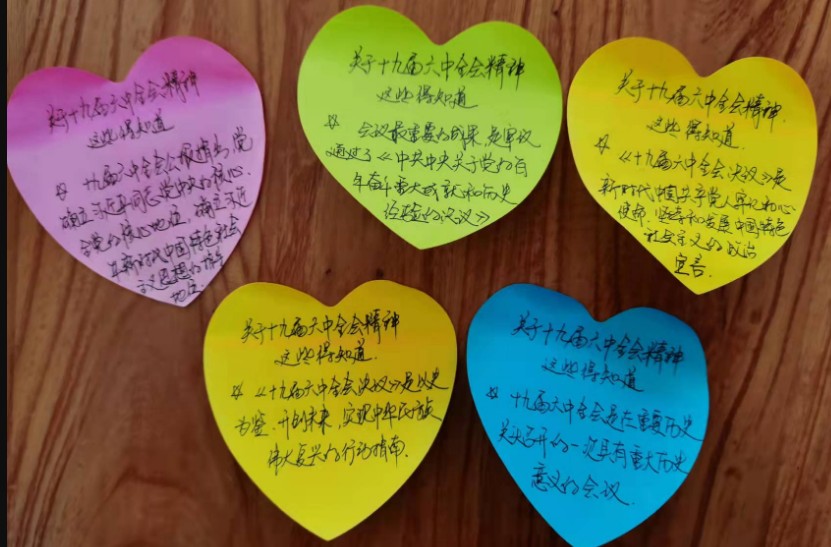 关于十九届六中全会精神
这些得知道
☆ 十九届六中全会公报指出,党
确立习近平同志党中央的核心、
全党的核心地位,确立习近
平新时代中国特色社会
主义思想的指导
地位.
关于十九届六中全会精神
这些得知道
☆ 会议最重要的成果,是审议
通过了《中共中央关于党的百
年奋斗重大成就和历史
经验的决议》
关于十九届六中全会精神.
这些得知道.
☆ 《十九届六中全会决议》是
新时代中国共产党人牢记初心
使命、坚持和发展中国特色
社会主义的政治
宣言.
关于十九届六中全会精神
这些得知道.
☆ 《十九届六中全会决议》是以史
为鉴、开创未来,实现中华民族
伟大复兴的行动指南.
关于十九届六中全会精神
这些得知道
☆ 十九届六中全会是在重要历史
关头召开的一次具有重大历史
意义的会议.